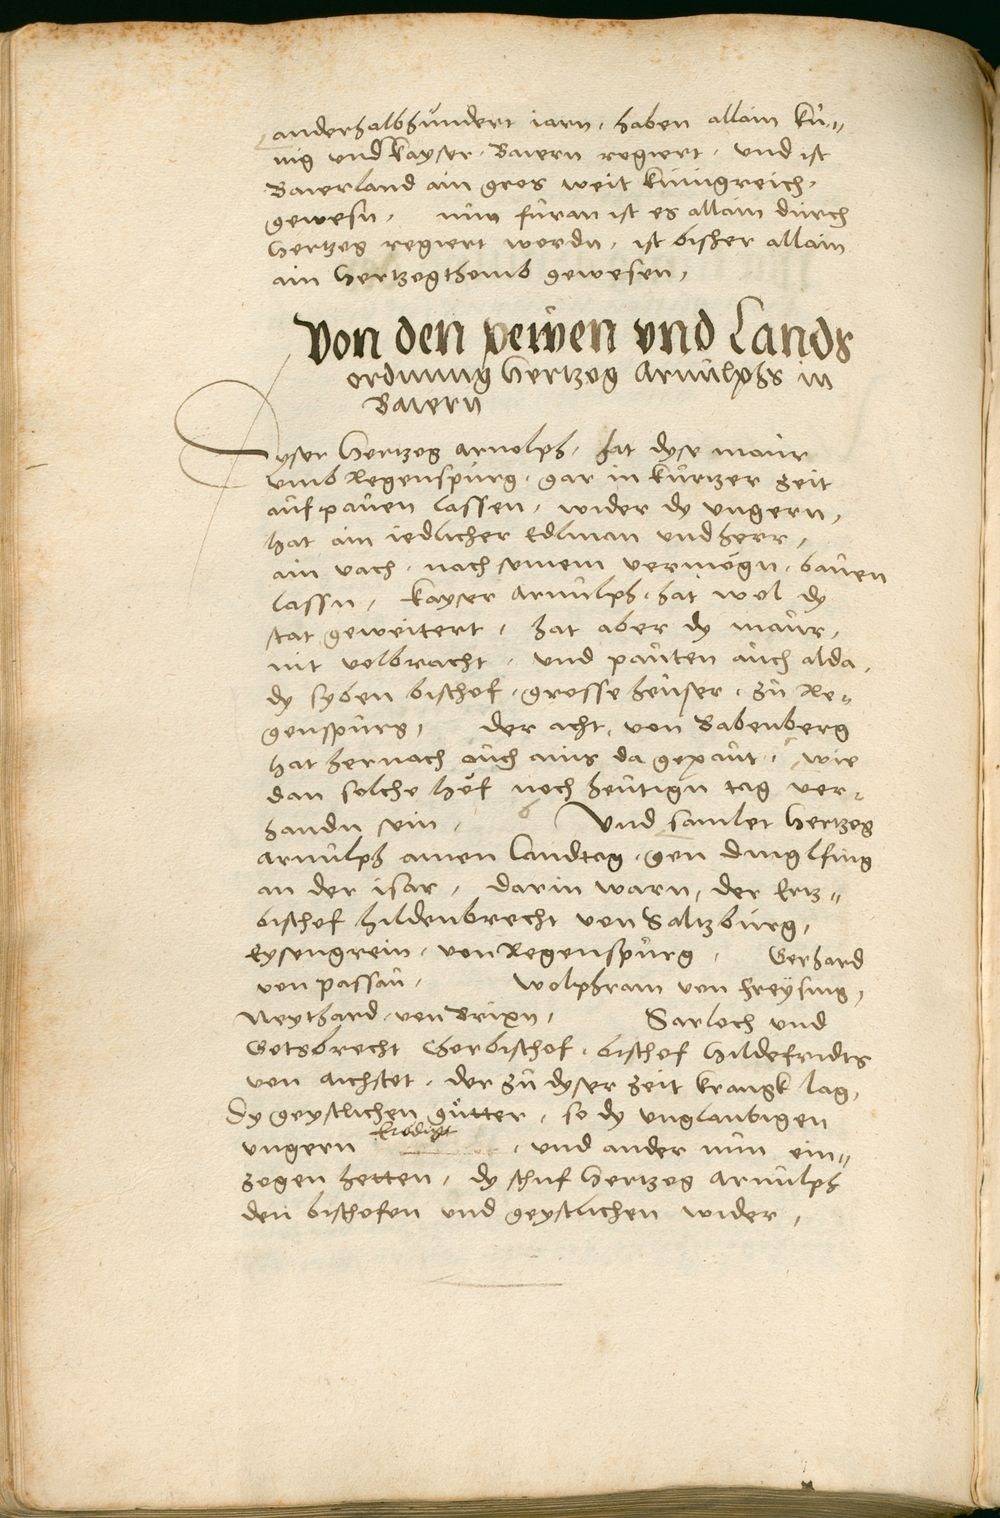 anderhalbhundert iarn, haben allain kü-
nig und kayser Baiern regiert, und ist
Baierland ain gros weit künigreich,
gewesn, nun füran ist es allain durch
hertzog regiert wordn, ist bisher allain
ain hertzogthomb gewesen,
Von den peuen vnd Lands
ordnung hertzog Arnulphs in
Baiern
Dyser hertzog Arnolph, hat dyse maur
umb Regenspurg, gar in kurtzer zeit
aufpauen lassen, wider dy ungern,
hat ain iedlicher Edlman und herr,
ain vach, nach seinem vermögn, bauen
lassn, kayser Arnulph, hat wol dy
stat geweitert, hat aber dy maur,
nit volbracht, und pauten auch alda,
dy syben bischof, grosse heuser, zu Re-
genspurg, der acht, von Babenberg
hat hernach auch ains da gepaut, wie
dan solche höf noch heutign tag ver-
handn sein, Und samlet hertzog
Arnulph ainen Landtag, gen dinglfing
an der isar, darin warn, der Ertz-
bischof hildenbrecht von Saltzburg,
Eysengrein, von Regenspurg, Gerhard
von passau, Wolphram von freysing,
Neythard, von Brixn, Sarloch und
Gotsbrecht Chorbischof, bischof hildefridts
von Aichstet, der zu dyser zeit krangk lag,
Dy geystlichen gütter, so dy unglaubigen
ungern Erödigt, und ander nun ein-
zogen hetten, dy schuf hertzog Arnulph
den bischofen und geystlichen wider,